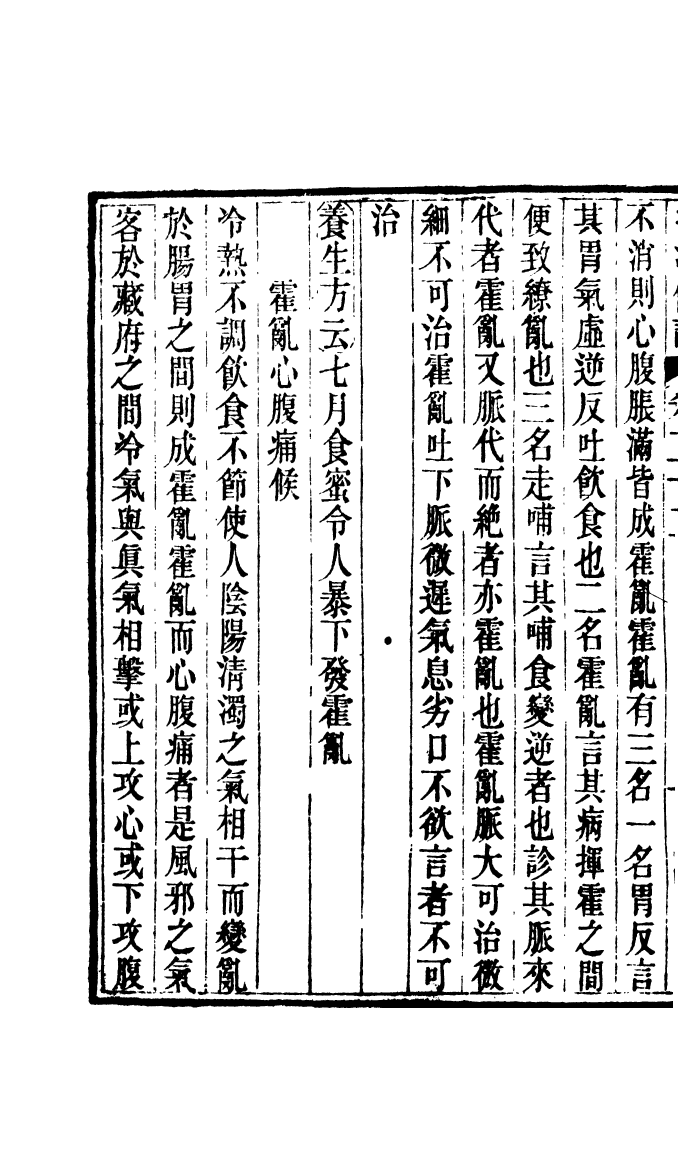 不消則心腹脹滿皆成霍亂霍亂有三名一名胃反言
其胃氣虛逆反吐飲食也二名霍亂言其病揮霍之間
便致繚亂也三名走哺言其哺食變逆者也診其脈來
代者霍亂又脈代而絕者亦霍亂也霍亂脈大可治微
細不可治霍亂吐下脈微遲氣息劣口不欲言者不可
治
養生方云七月食蜜令人暴下發霍亂
霍亂心腹痛候
冷熱不調飲食不節使人陰陽淸濁之氣相干而變亂
於腸胃之間則成霍亂霍亂而心腹痛者是風邪之氣
客於藏府之間冷氣與眞氣相擊或上攻心或下攻腹